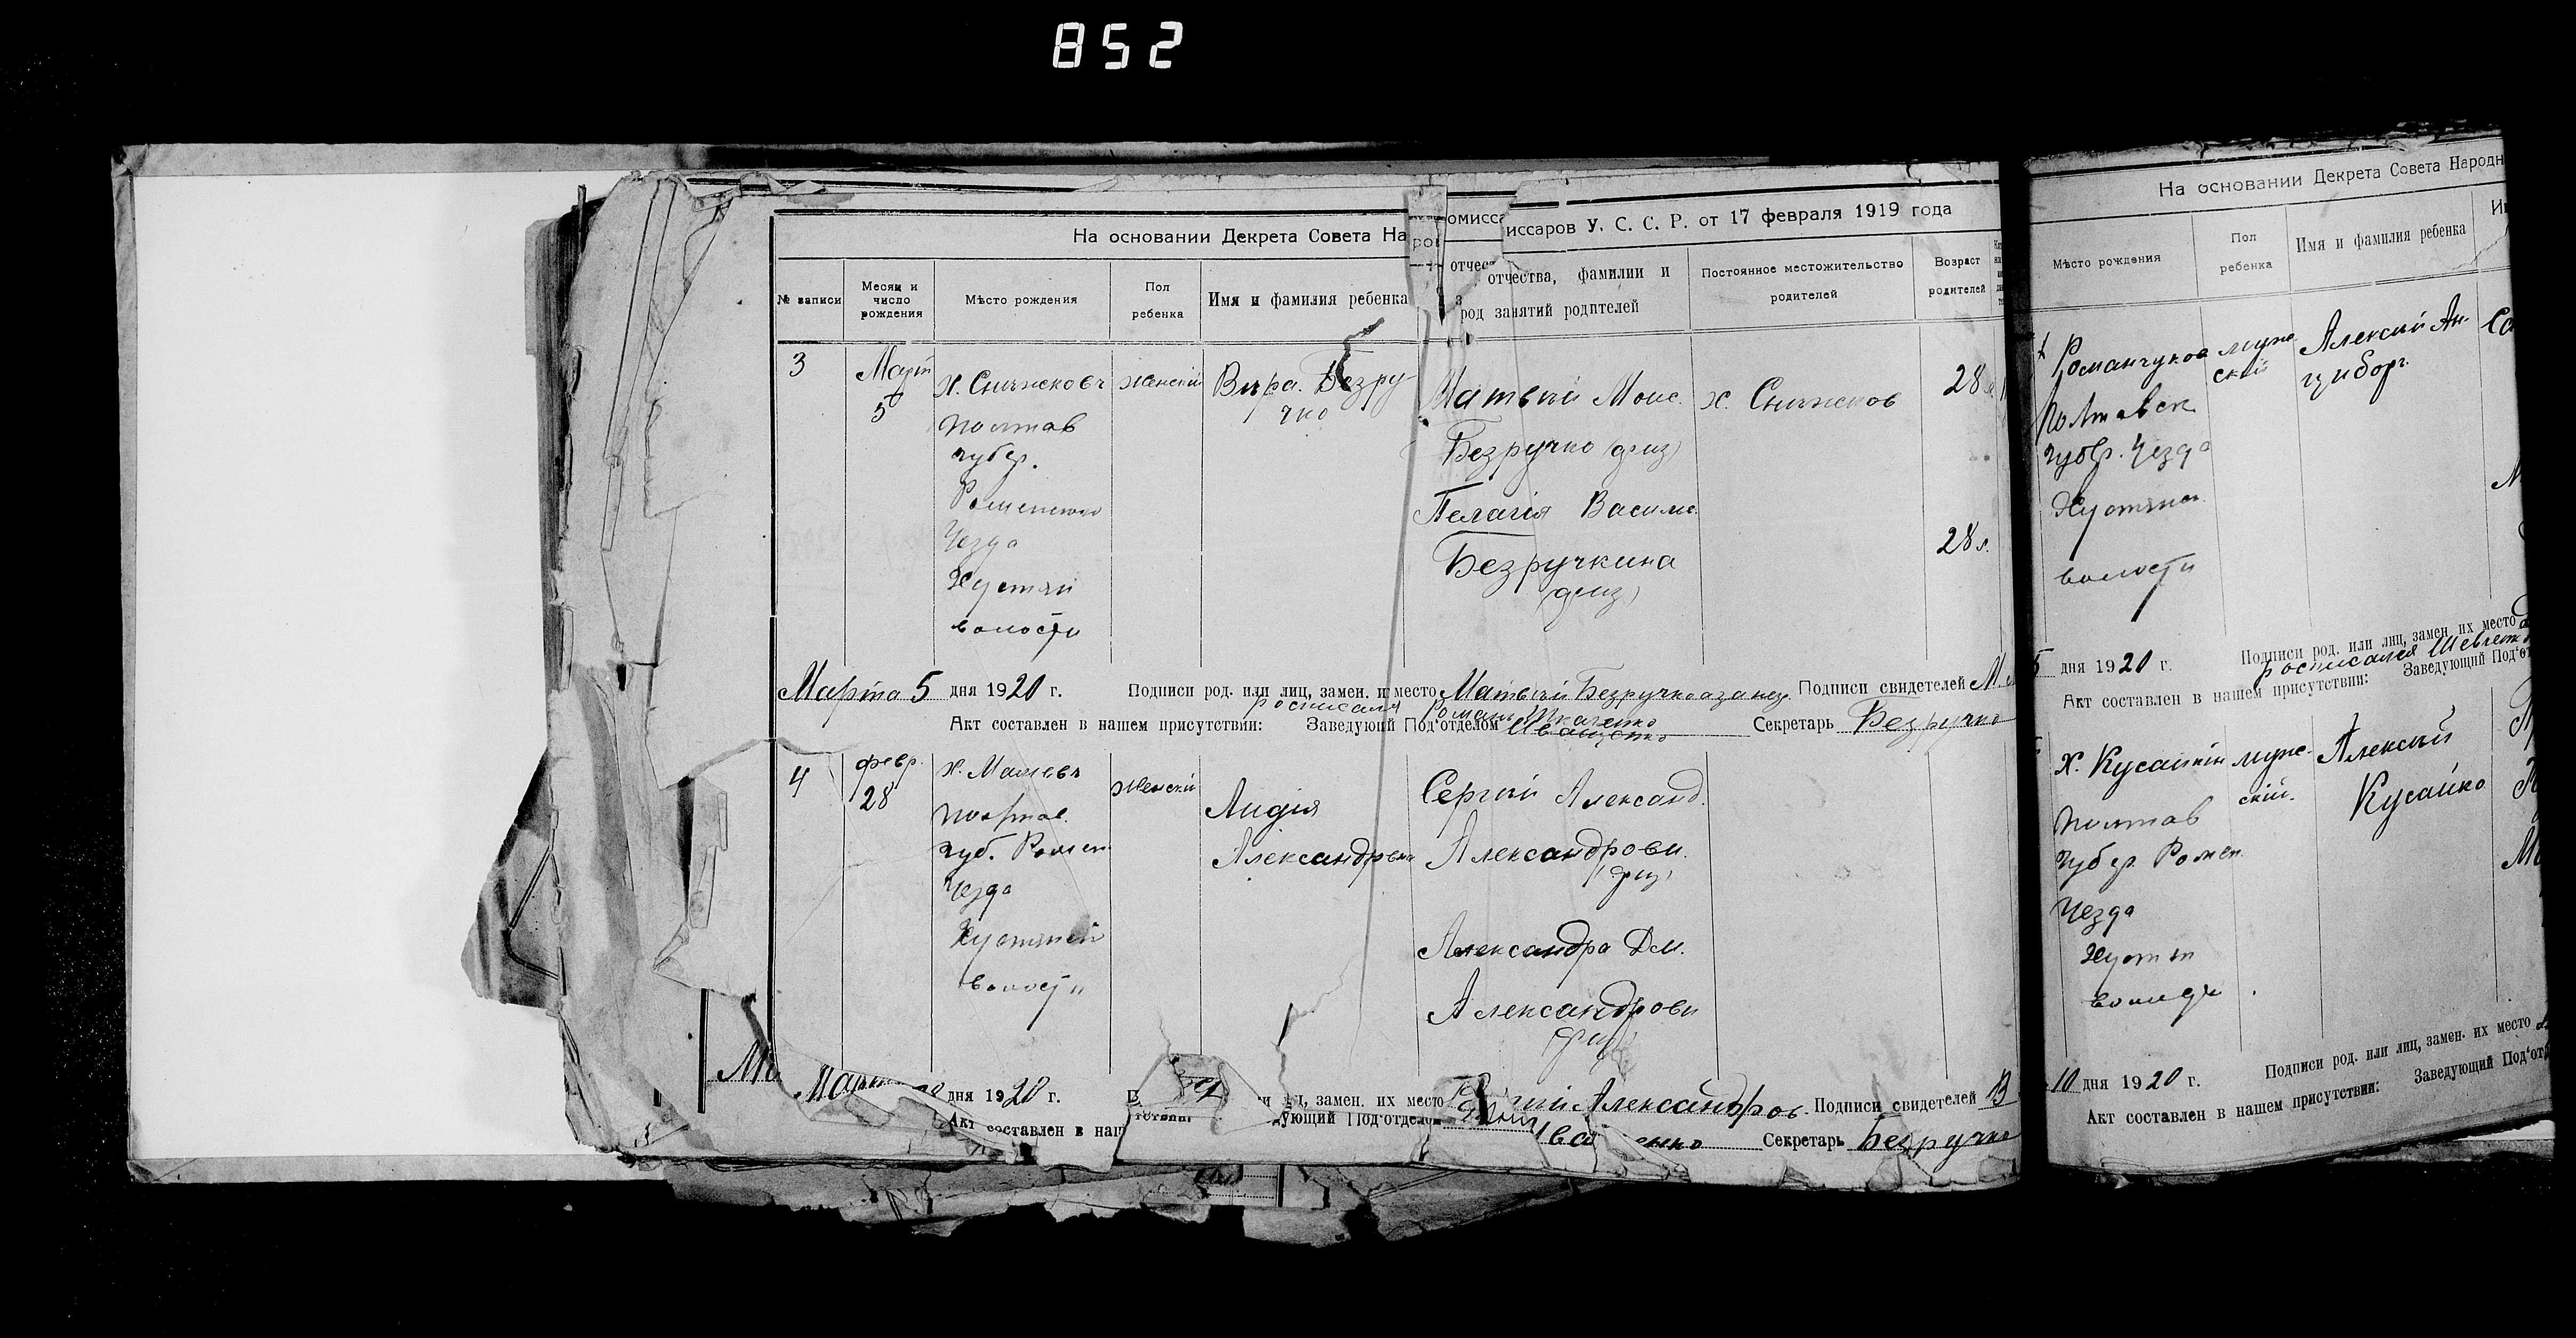 852
На основании Декрета Совета На
омисса
иссаров У. С. С. Р. от 17 февраля 1919 года
№ записи
Месяц и число рождения
Мѣсто рождения
Пол ребенка
Имя и фамилия ребенка
отчества, фамилии и
род занятий родителей
Постоянное местожительство родителей
Возраст родителей
3
Март
5
х. Снѣжковъ
Полтав
губер.
Роменского
Уезда
Хустян
волости
женский
Вѣра Безру-
чко
Матвѣй Моис.
Безручко
Пелагія Василь.
Безручкина
х. Снѣжков
28
28 л.
Марта 5 дня 1920 г. Подписи род. или лиц, замен. их место Матвѣй Безручко Подписи свидетелей
росписался Роман Ткаченко
Акт составлен в нашем присутствии: Заведующий Под'отделом Иващенко Секретарь Безручко
4
февр.
28
х.
Полтав.
губ. Ромен
Уезда
волости
женский
Лидія
Сергѣй Александ.
Александрови.
Александра Дм.
Александрови
дня 1920 г. лиц, замен. их место Александров Подписи свидетелей В
Акт составлен в наш ующий Под'отделом Секретарь Безручко
На основании Декрета Совета Народн
Мѣсто рождения
Пол ребенка
Имя и фамилия ребенка
Романчуков
Полтавск
губер. Уезда
волости
муже
ский
Алексѣй Ан-
циборг
5 дня 1920 г. Подписи род. или лиц, замен. их место
росписался Шевченко
Акт составлен в нашем присутствии: Заведующий Под'от
х. Кусайкин
Полтав
губер. Ромен.
Уезда
муже-
ский.
Алексѣй
Кусайко
10 дня 1920 г. Подписи род. или лиц, замен. их место
Акт составлен в нашем присутствии: Заведующий Под'от